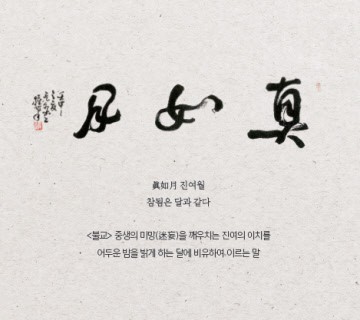 真如月
眞如月 진여월
참됨은 달과 같다
<불교> 중생의 미망(迷妄)을 깨우치는 진여의 이치를
어두운 밤을 밝게 하는 달에 비유하여 이르는 말